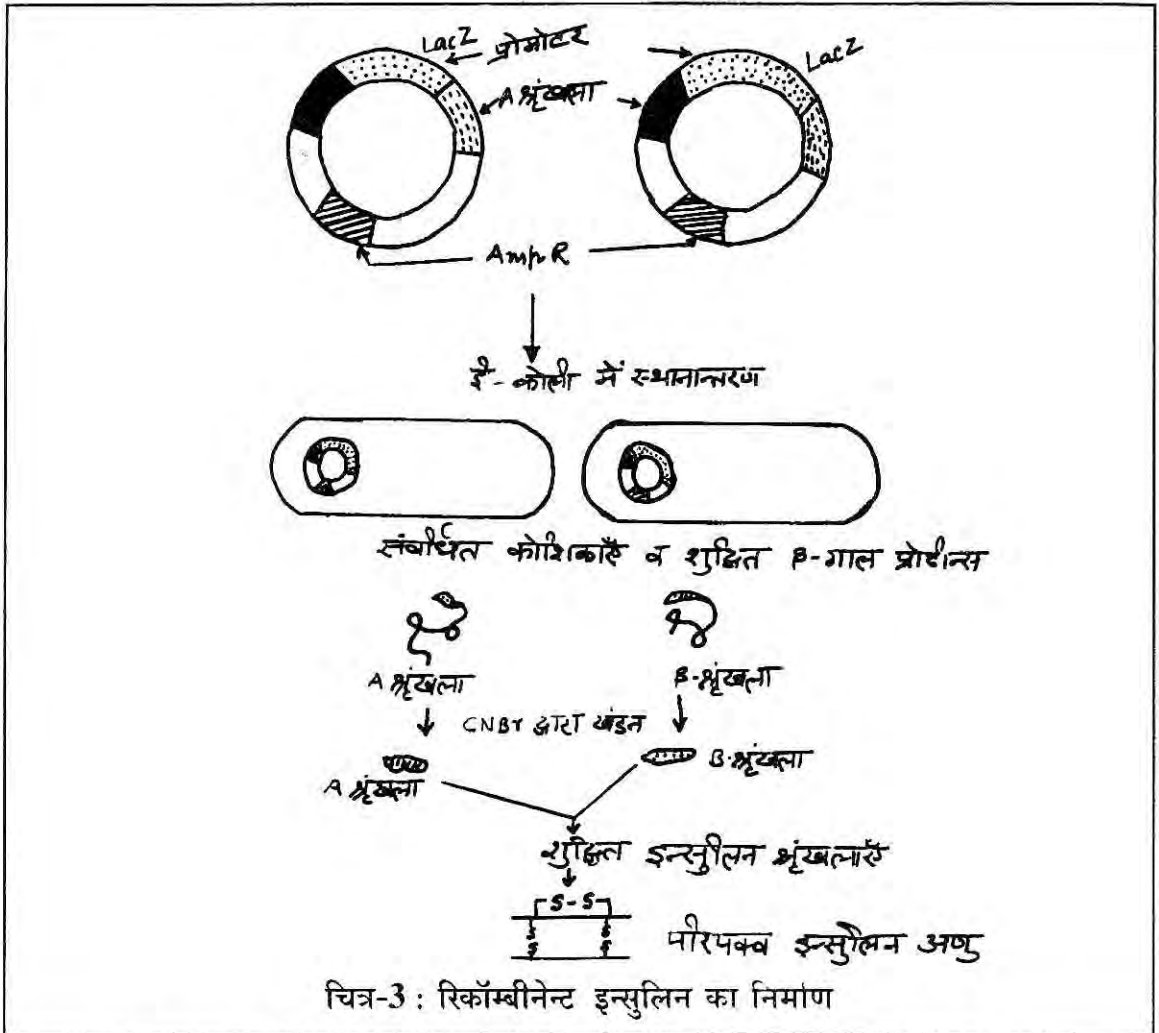 LacZ प्रोमोटर LacZ
A श्रृंखला
AmpR
ई-कोली में स्थानान्तरण
संवर्धित कोशिकाएँ व शुद्धित β-गाल प्रोटीन्स
A श्रृंखला β-श्रृंखला
CNBr द्वारा खंडन
A श्रृंखला B-श्रृंखला
शुद्धित इन्सुलिन श्रृंखलाएँ
S-S
S S
S S
परिपक्व इन्सुलिन अणु
चित्र-3 : रिकॉम्बीनेन्ट इन्सुलिन का निर्माण